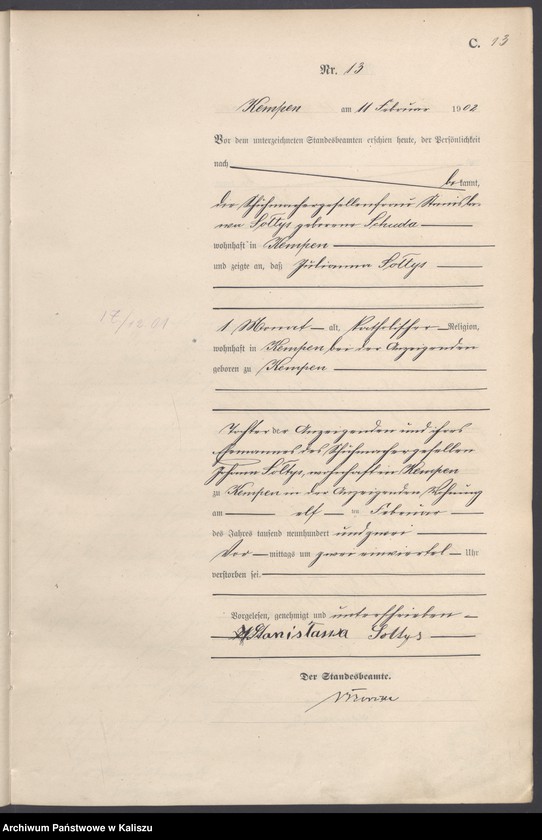 C. 13
Nr. 13
Kempen am 11 Februar 1902
Vor dem unterzeichneten Standesbeamten erschien heute, der Persönlichkeit
nach
be kannt,
die Schuhmachergesellenfrau Stanisla-
wa Soltys geborene Schuda
wohnhaft in Kempen
und zeigte an, daß Julianna Soltys
1 Monat alt, katholischer Religion,
17/12 01
wohnhaft in Kempen bei der Anzeigenden
geboren zu Kempen
Tochter der Anzeigenden und ihres
Ehemannes des Schuhmachergesellen
Johann Soltys, wohnhaft in Kempen
zu Kempen in der Anzeigenden Wohnung
am elf ten Februar
des Jahres tausend neunhundert und zwei
Vor mittags um zwei einviertel Uhr
verstorben sei.
Vorgelesen, genehmigt und unterschrieben
Stanisława Soltys
Der Standesbeamte.
Archiwum Państwowe w Kaliszu